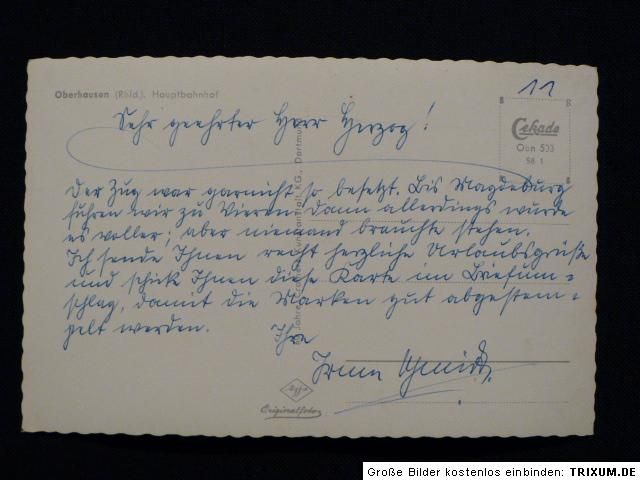 11
Oberhausen (Rhld.), Hauptbahnhof
Cekade
Obn 533
58 1
Sehr geehrter Herr Herzog!
Der Zug war garnicht so besetzt. Bis Magdeburg
fuhren wir zu Vieren, dann allerdings wurde
es voller; aber niemand brauchte stehen.
Ich sende Ihnen recht herzliche Urlaubsgrüße
und schick Ihnen diese Karte im Briefum=
schlag, damit die Marken gut abgestem=
pelt werden.
Ihre
Schmidt
Agfa
Originalfoto
KG., Dortmund
Große Bilder kostenlos einbinden: TRIXUM.DE